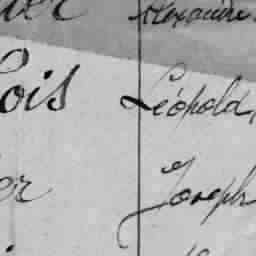 Alexandre
ois Léopold,
er Joseph